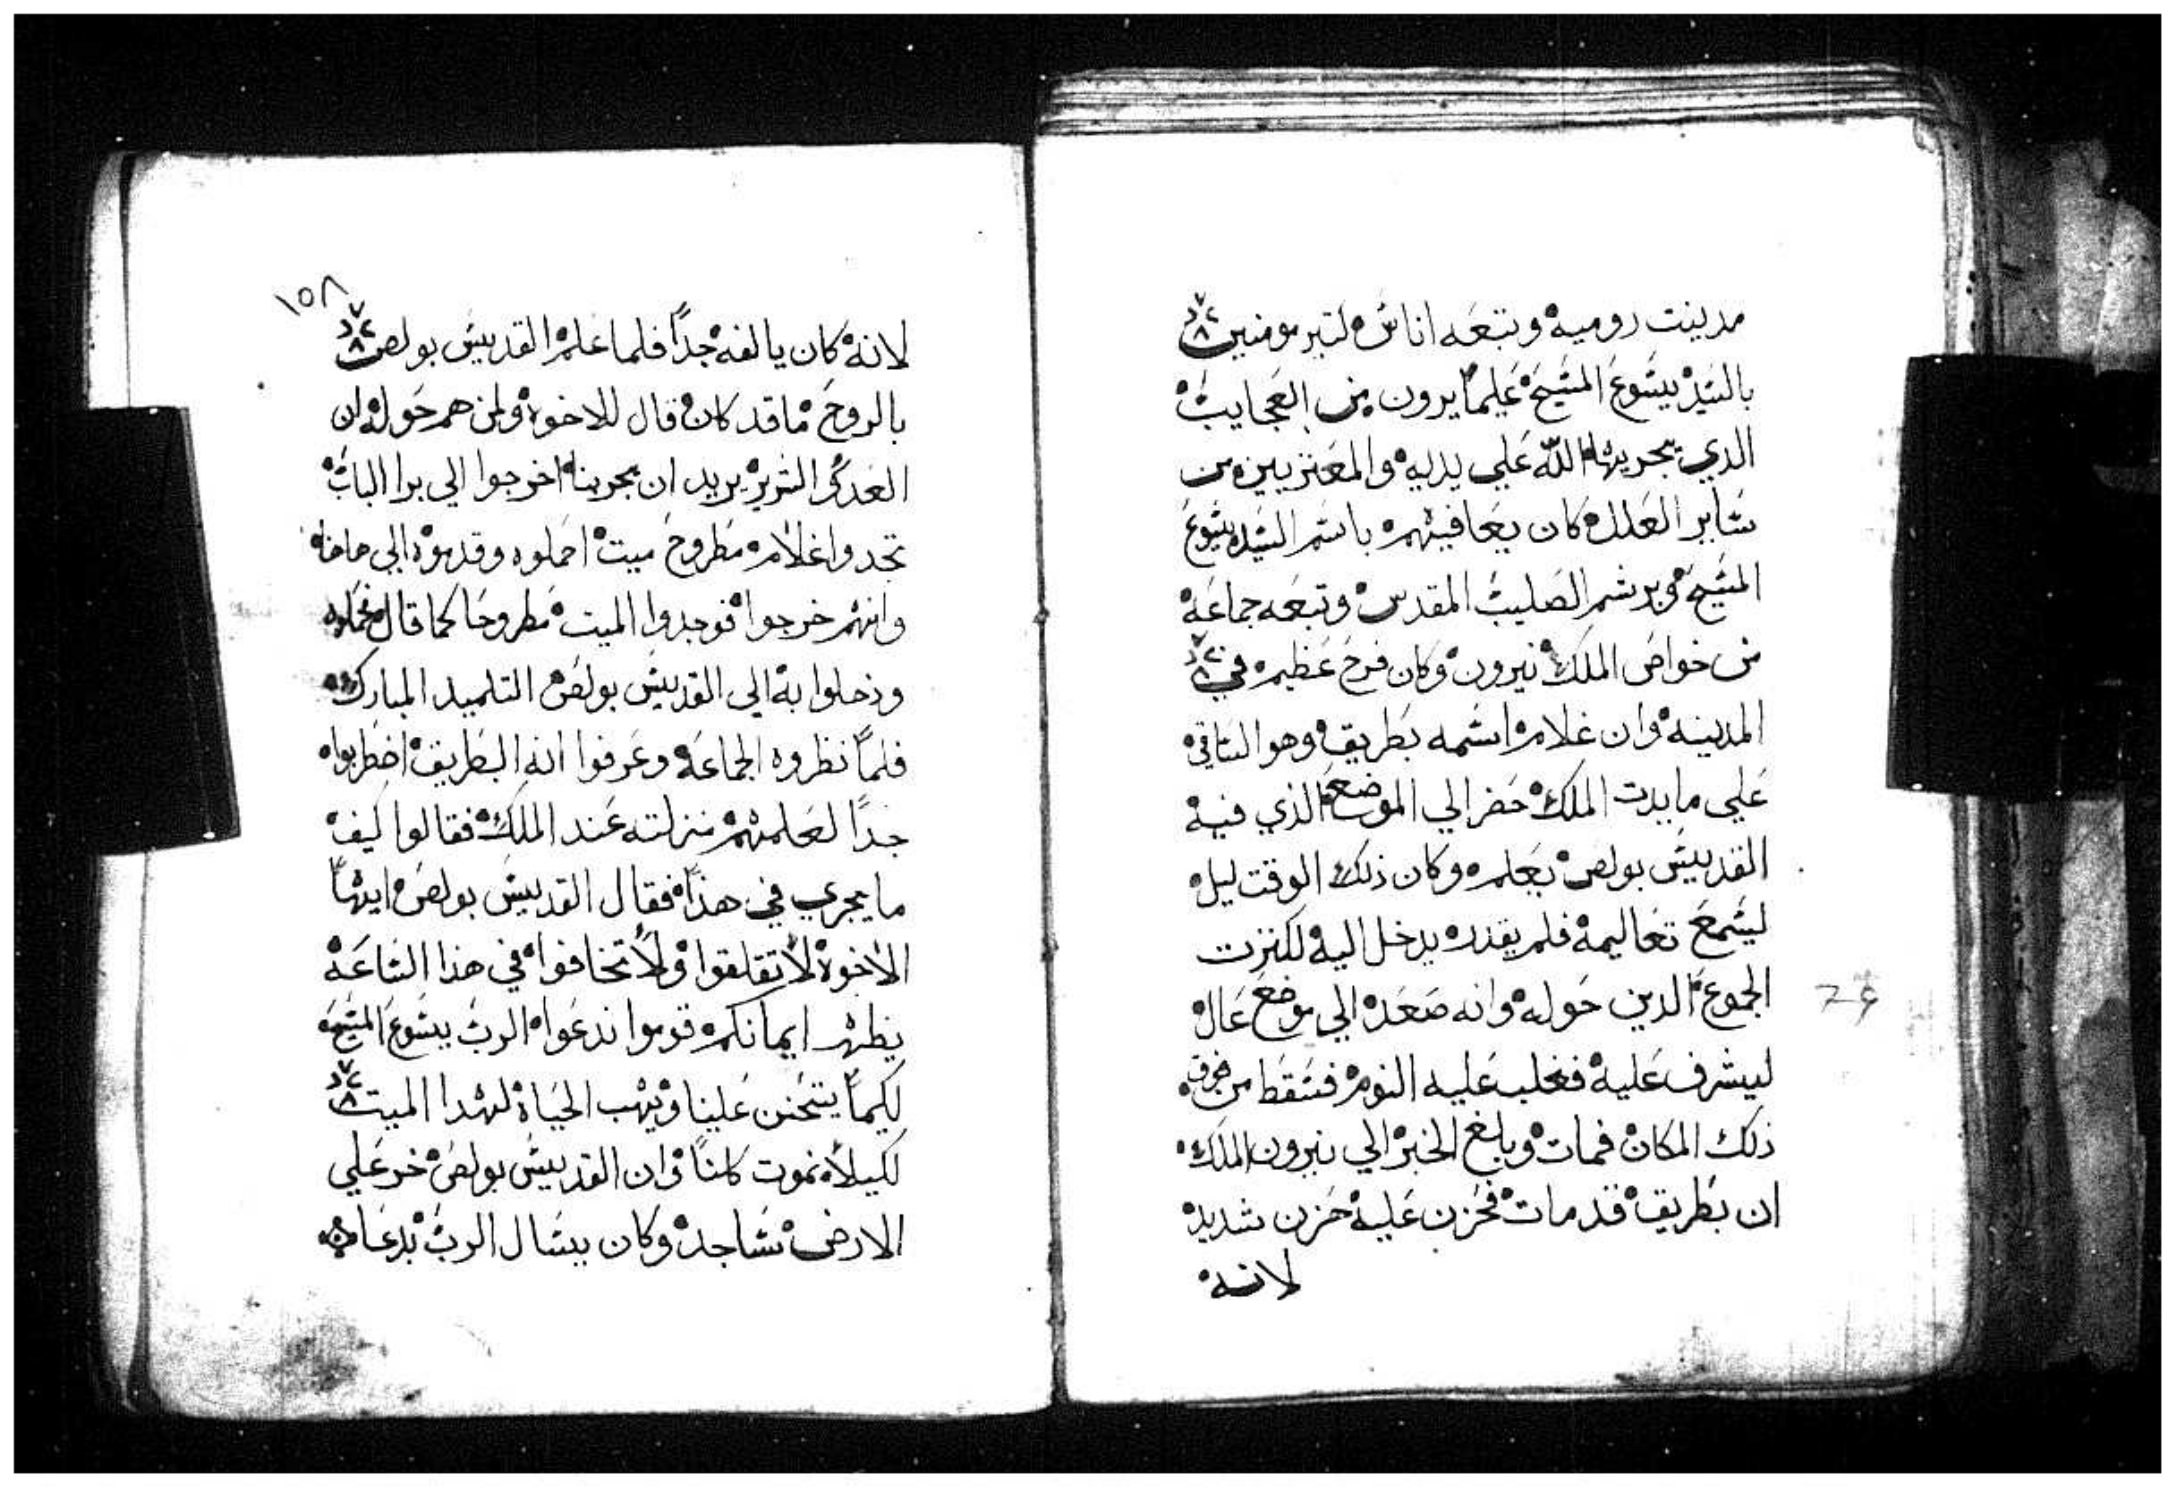 مدينت روميه وتبعه اناس كتير مومنين
بالسيد يسوع المسيح علما يرون من العجايب
الذي يجريها الله علي يديه والمعتريين من
ساير العلل كان يعافيهم باسم السيد يسوع
المسيح وبرشم الصليب المقدس وتبعه جماعه
من خواص الملك نيرون وكان فرح عظيم في
المدينه وان غلام اسمه بطريق وهو الساقي
علي مايدت الملك حضر الي الموضع الذي فيه
القديس بولص يعلم وكان ذلك الوقت ليل
ليسمع تعاليمه فلم يقدر يدخل اليه لكترت
الجموع الدين حوله وانه صعد الي موضع عال
ليشرف عليه فغلب عليه النوم فسقط من فوق
ذلك المكان فمات وبلغ الخبر الي نيرون الملك
ان بطريق قد مات فحزن عليه حزن شديد
لانه
١٥٨
لانه كان يالفه جداً فلما علم القديس بولص
بالروح ما قد كان قال للاخوه ولمن هم حوله ان
العدو الشرير يريد ان يجربنا اخرجوا الي برا الباب
تجدوا غلام مطروح ميت احملوه وقدموه الي هاهنا
وانهم خرجوا فوجدوا الميت مطروحا كما قال فحملوه
ودخلوا به الي القديس بولص التلميد المبارك
فلما نظروه الجماعه وعرفوا انه البطريق اضطربوا
جداً لعلمهم منزلته عند الملك فقالوا كيف
ما يجري في هذا فقال القديس بولص ايها
الاخوه لا تقلقوا ولا تخافوا في هذا الساعه
يظهر ايمانكم قوموا ندعوا الرب يسوع المسيح
لكيما يتحنن علينا ويهب الحياه لهدا الميت
لكيلا نموت كلنا وان القديس بولص خر علي
الارض ساجد وكان يسال الرب بدعا